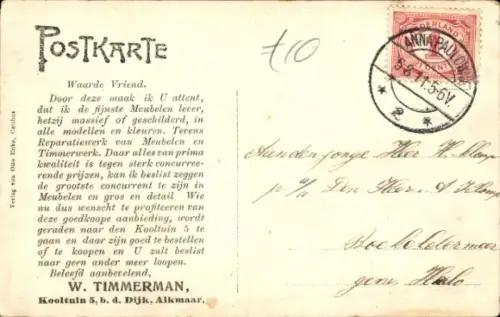 POSTKARTE
£10
NEDERLAND
ANNA PAULOWNA
5·8·11·5-6V.
* 2 *
Waarde Vriend.
Door deze maak ik U attent,
dat ik de fijnste Meubelen lever,
hetzij massief of geschilderd, in
alle modellen en kleuren. Tevens
Reparatiewerk van Meubelen en
Timmerwerk. Daar alles van prima
kwaliteit is tegen sterk concurree-
rende prijzen, kan ik beslist zeggen
de grootste concurrent te zijn in
Meubelen en gros en detail. Wie
nu dus wenscht te profiteeren van
deze goedkoope aanbieding, wordt
geraden naar den Kooltuin 5 te
gaan en daar zijn goed te bestellen
of te koopen en U zult beslist
naar geen ander meer loopen.
Beleefd aanbevelend,
W. TIMMERMAN,
Kooltuin 5, b. d. Dijk, Alkmaar.
Verlag von
Aan den jonge Heer
p/a Den Heer A